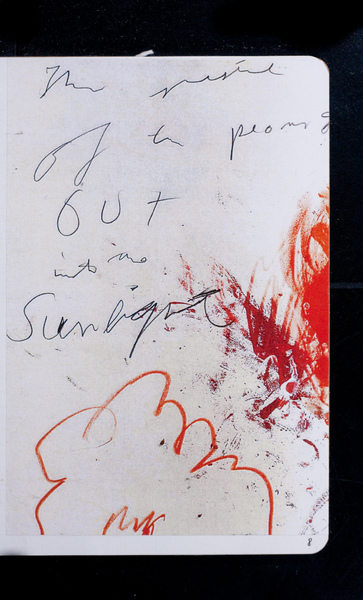 The pistil
of the peony
OUT
into the
Sunlight
8